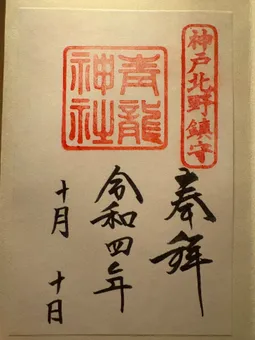 神戸北野鎮守
奉拝
青龍神社
令和四年
十月十日